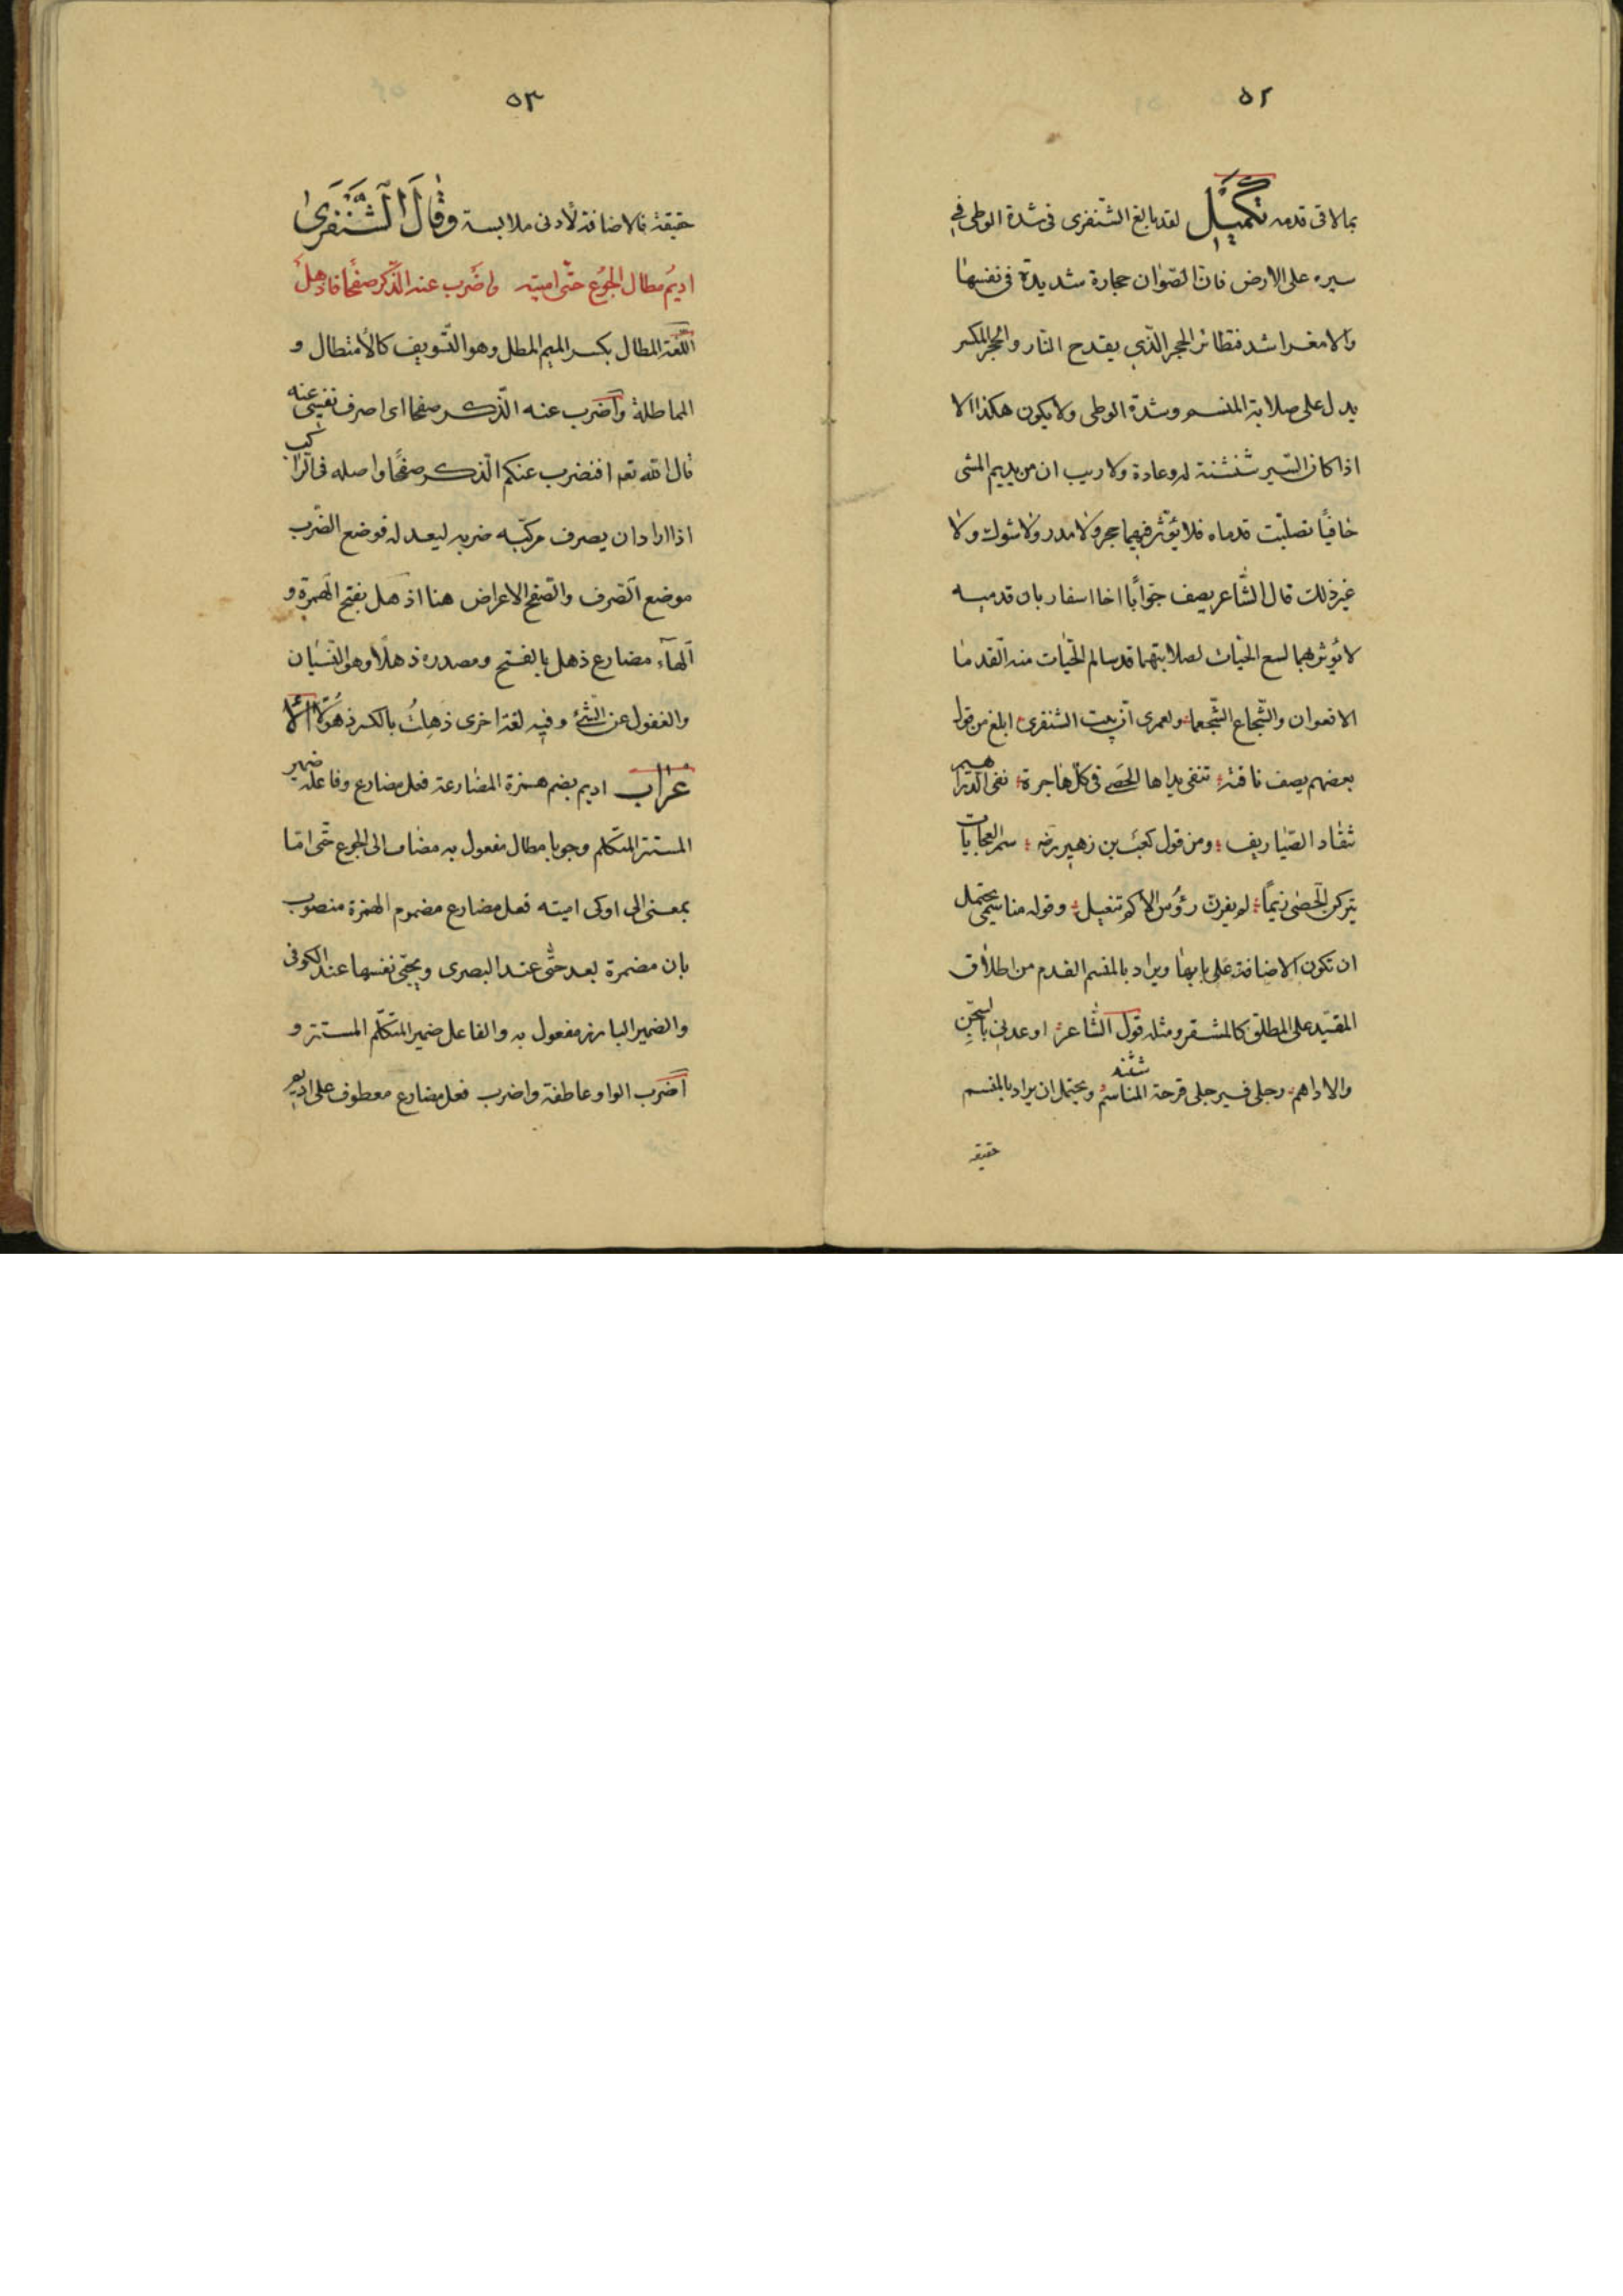 ٥٢
بما لاقى قدمه تكميل لقد بالغ الشّنفرى فى شدة الوطى فى
سيره على الارض فانّ الصّوان حجارة شديدة فى نفسها
والامغر اشد فتطائر الحجر الّذي يقدح النّار والحجر المكسر
يدل على صلابة المنسم وشدّة الوطى ولا يكون هكذا الا
اذا كان السّير شنشنة له وعادة ولا ريب ان من يديم المشى
حافيًا تصلّبت قدماه فلا يؤثّر فيهما حجر ولا مدر ولا شوك ولا
غير ذلك قال الشّاعر يصف جوّابًا اخا اسفار بان قدميه
لا يؤثر بهما لسع الحيّات لصلابتهما قد سالم الحيّات منه القدما
الافعوان والشّجاع الشّجعما ولعمرى انّ بيت الشنفرى ابلغ من قول
بعضهم يصف ناقة تنفى يداها الحصى فى كلّ هاجرة نفى الدّراهيم
تنقاد الصّياريف ومن قول كعب بن زهير رضه سمر العجايات
يتركن الحصى زيمًا لم يقهنّ رؤس الاكم تنعيل وقوله مناسمى يحتمل
ان تكون الاضافة على بابها ويراد بالمنسم القدم من اطلاق
المقيّد على المطلق كالمشفر ومثله قول الشّاعر اوعدنى بالسّجن
والاداهم رجلى فـرجلى شثنة المناسم ويحتمل ان يراد بالمنسم
حقيقة
٥٣
حقيقة فالاضافة لأدنى ملابسة وقال الشَّنفرى
اديمُ مطال الجوع حتّى اميته واضرب عنه الذّكر صفحًا فاذهلُ
اللّغة المطال بكسر الميم المطل وهو التّسويف كالأمتطال و
المماطلة واضرب عنه الذّكر صفحا اى اصرف نفسى عنه
قال الله تعه افنضرب عنكم الّذكر صفحًا واصله فى الراكب
اذا اراد ان يصرف مركبه ضربه ليعدله فوضع الضّرب
موضع الصّرف والصّفح الاعراض هنا اذهل بفتح الهمزة و
الهآء مضارع ذهل بالفتح ومصدره ذهلًا وهو النّسيان
والغفول عن الشّئ وفيه لغة اخرى ذهِلتُ بالكسر ذهُولًا الا
عراب اديم بضم همزة المضارعة فعل مضارع وفاعله ضمير
المستتر المتكلّم وجوبا مطال مفعول به مضاف الى الجوع حتّى امّا
بمعنى الى او كى اميته فعل مضارع مضموم الهمزة منصوب
بان مضمرة بعد حتّى عند البصرى وبحتّى نفسها عند الكوفى
والضمير البارز مفعول به والفاعل ضمير المتكلّم المستتر و
اضرب الواو عاطفة واضرب فعل مضارع معطوف على اديم